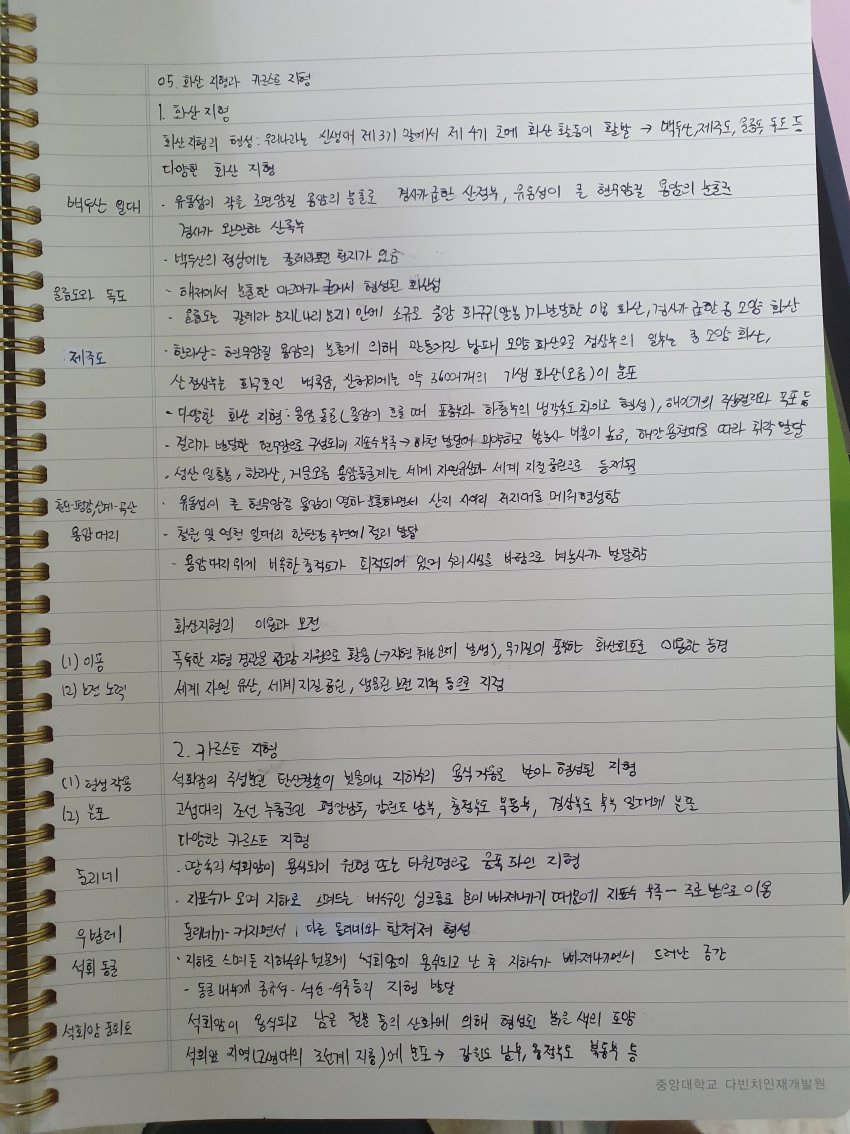 05. 화산 지형과 카르스트 지형
1. 화산 지형
화산지형의 형성 : 우리나라는 신생대 제3기 말에서 제4기 초에 화산 활동이 활발 → 백두산, 제주도, 울릉도 독도 등
다양한 화산 지형
백두산 일대 · 유동성이 작은 조면암질 용암의 분출로 경사가 급한 산정부, 유동성이 큰 현무암질 용암의 분출로
경사가 완만한 산록부
· 백두산의 정상에는 칼데라호인 천지가 있음
울릉도와 독도 · 해저에서 분출한 마그마가 굳어서 형성된 화산섬
· 울릉도는 칼데라 분지(나리 분지) 안에 소규모 중앙 화구구(알봉)가 발달한 이중 화산, 경사가 급한 종 모양 화산
: 제주도 · 한라산 : 현무암질 용암의 분출에 의해 만들어진 방패 모양 화산으로 정상부의 일부는 종 모양 화산,
산 정상부는 화구호인 백록담, 산허리에는 약 360여개의 기생 화산(오름)이 분포
· 다양한 화산 지형 : 용암 동굴(용암이 흐를 때 표층부와 하층부의 냉각속도 차이로 형성), 해안가의 주상절리와 폭포 등
· 절리가 발달한 현무암으로 구성되어 지표수 부족 → 하천 발달이 미약하고 밭농사 비율이 높음, 해안 용천대를 따라 취락 발달
· 성산 일출봉, 한라산, 거문오름 용암동굴계는 세계 자연유산과 세계 지질 공원으로 등재됨
철원-평강, 신계-곡산 · 유동성이 큰 현무암질 용암이 열하 분출하면서 산리 사이의 저지대를 메워 형성함
용암 대지 · 철원 및 연천 일대의 한탄강 주변에 절리 발달
· 용암 대지 위에 비옥한 충적토가 퇴적되어 있어 수리시설을 바탕으로 벼농사가 발달함
화산지형의 이용과 보전
(1) 이용 독특한 지형 경관은 관광 자원으로 활용 (→지형 훼손 문제 발생), 무기질이 풍부한 화산회토를 이용한 농경
(2) 보전 노력 세계 자연 유산, 세계 지질 공원, 생물권 보전 지역 등으로 지정
2. 카르스트 지형
(1) 형성 작용 석회암의 주성분인 탄산칼슘이 빗물이나 지하수의 용식 작용을 받아 형성된 지형
(2) 분포 고생대의 조선 누층군인 평안남도, 강원도 남부, 충청북도 북동부, 경상북도 북부 일대에 분포
다양한 카르스트 지형
돌리네 · 땅속의 석회암이 용식되어 원형 또는 타원형으로 움푹 파인 지형
· 지표수가 모여 지하로 스며드는 배수구인 싱크홀로 물이 빠져나가기 때문에 지표수 부족 → 주로 밭으로 이용
우발레 돌리네가 커지면서 다른 돌리네와 합쳐져 형성
석회 동굴 · 지하로 스며든 지하수와 빗물에 석회암이 용식되고 난 후 지하수가 빠져나가면서 드러난 공간
- 동굴 내부에 종유석 - 석순 - 석주 등의 지형 발달
석회암 풍화토 석회암이 용식되고 남은 철분 등의 산화에 의해 형성된 붉은 색의 토양
석회암 지역(고생대의 조선계 지층)에 분포 → 강원도 남부, 충청북도 북동부 등
중앙대학교 다빈치인재개발원